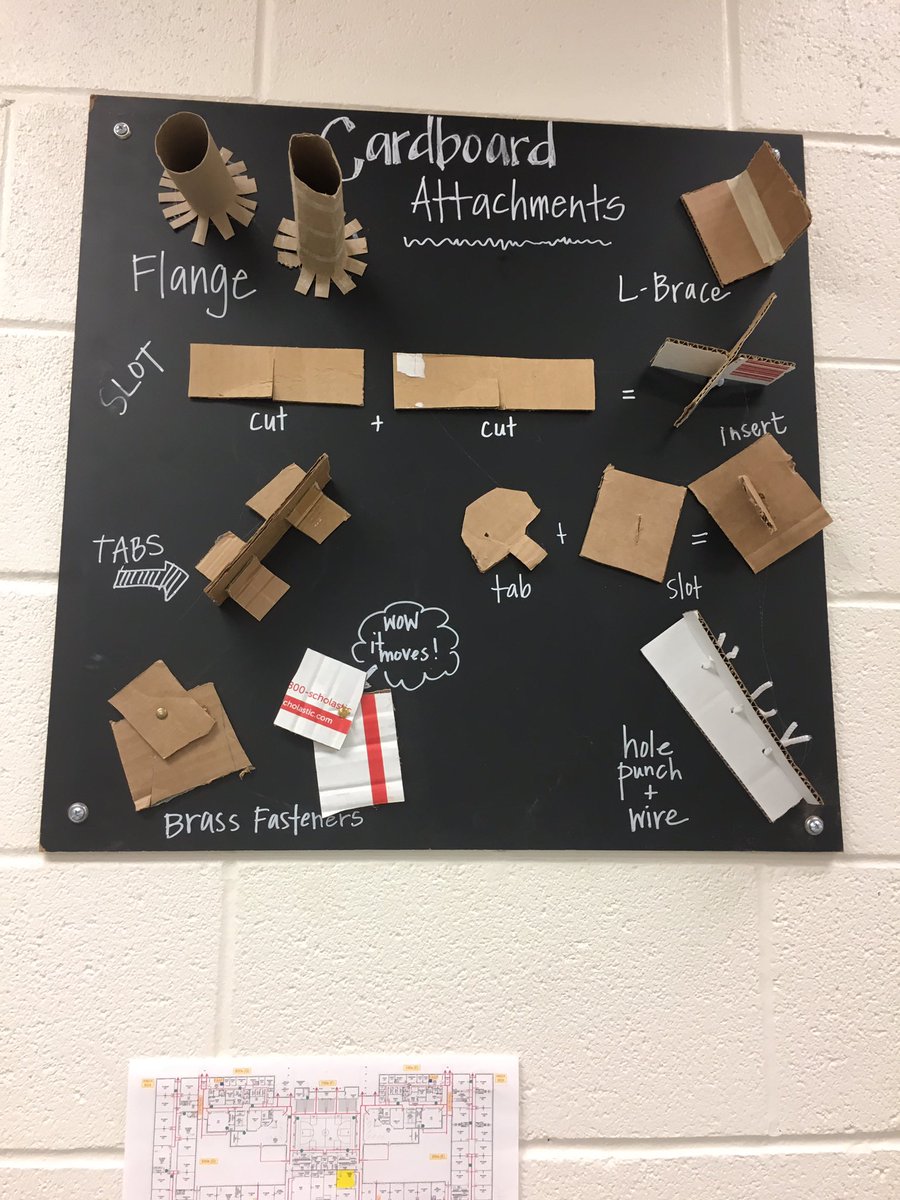 Cardboard
Attachments
Flange
L-Brace
SLOT
cut
+
cut
=
insert
TABS
tab
+
slot
=
wow
it moves!
800-scholastic
cholastic.com
hole
punch
+
wire
Brass Fasteners